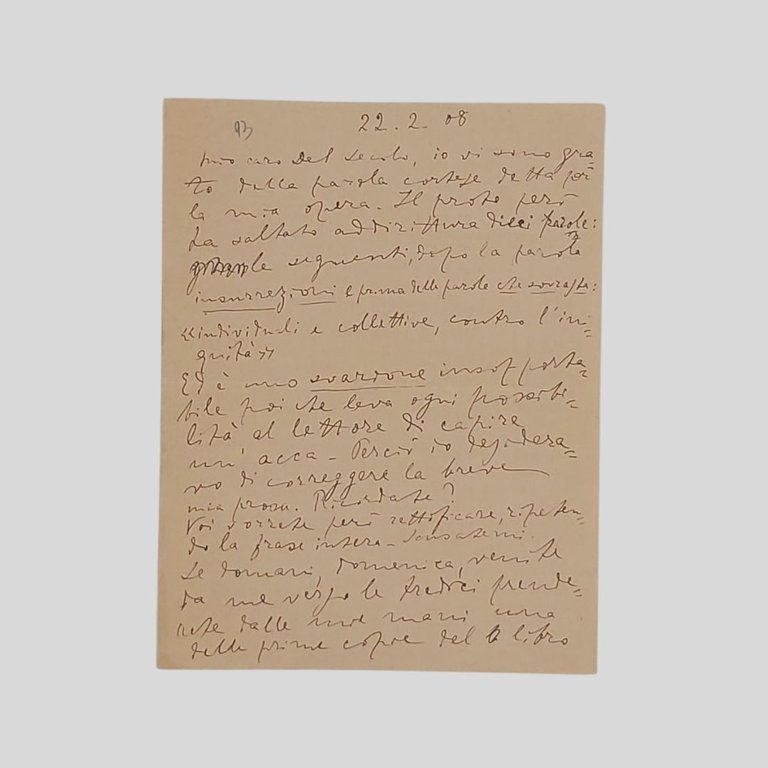 93
22.2.08
mio caro Del Secolo, io vi sono gra=
to della parola cortese detta per
la mia opera. Il proto però
ha saltato addirittura dieci parole:
le seguenti, dopo la parola
insurrezioni e prima delle parole che sovrasta:
«individuali e collettive, contro l'ini=
quità»
Ed è uno svarione insopporta=
bile poi che leva ogni possibi=
lità al lettore di capire
un' acca - Perciò io desidera=
vo di correggere la breve
mia prosa. Ricordate?
Voi vorrete però rettificare, ripeten=
do la frase intera - Scusatemi.
Se domani, domenica, venite
da me verso le tredici prende=
rete dalle mie mani una
delle prime copie del libro